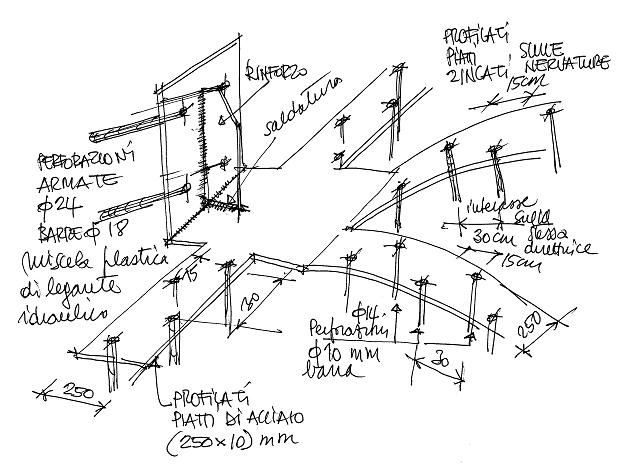 PROFILATI
PIATTI
ZINCATI
SULLE
NERVATURE
15cm
RINFORZO
saldatura
PERFORAZIONI
ARMATE
Φ24
BARRE Φ 18
miscela plastica
di legante
idraulico
interasse
30cm
sulla
stessa
direttrice
15cm
15
30
250
Φ14
Perforazioni
Φ10 mm
barra
30
250
PROFILATI
PIATTI DI ACCIAIO
(250×10) mm